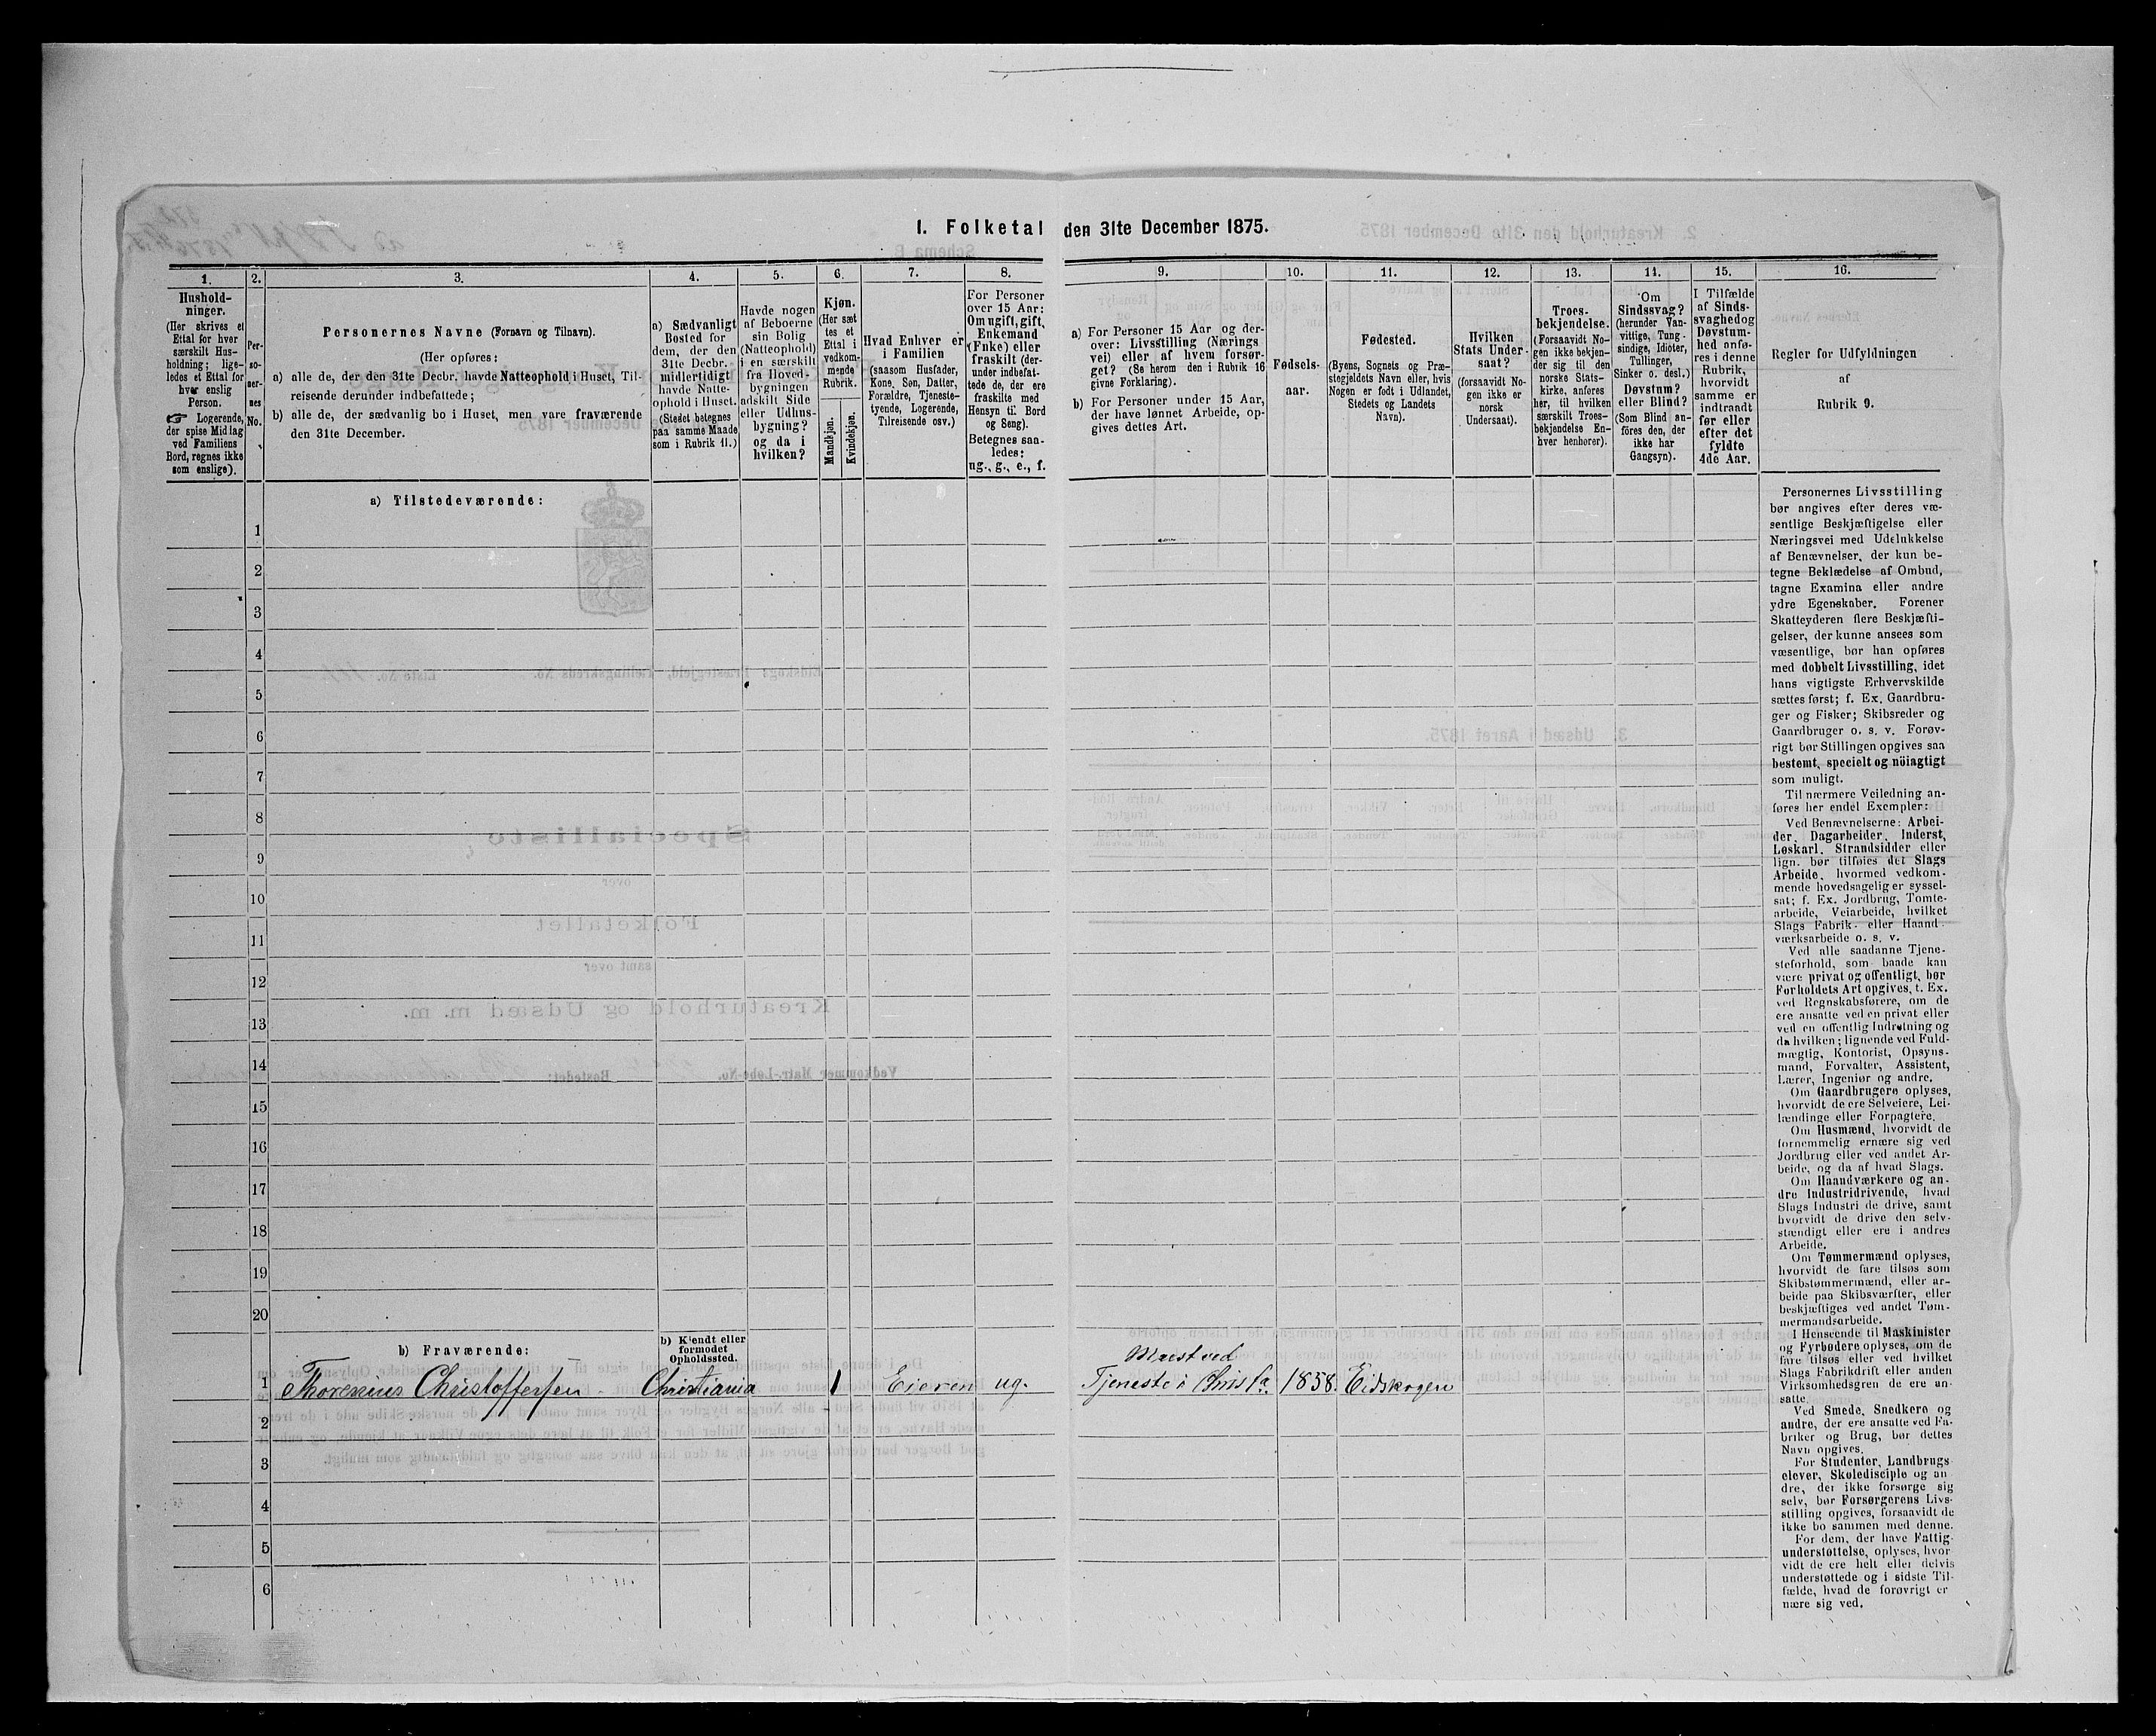 I. Folketal den 31te December 1875.
1.
2.
3.
4.
5.
6.
7.
8.
9.
10.
11.
12.
13.
14.
15.
16.
Hushold-
ninger.
(Her skrives et
Ettal for hver
særskilt Hus-
holdning; lige-
ledes et Ettal for
hver enslig
Person.
☞ Logerende,
der spise Middag
ved Familiens
Bord, regnes ikke
som enslige).
Per-
so-
ner-
nes
No.
Personernes Navne (Fornavn og Tilnavn).
(Her opføres:
a) alle de, der den 31te Decbr. havde Natteophold i Huset, Til-
reisende derunder indbefattede;
b) alle de, der sædvanlig bo i Huset, men vare fraværende
den 31te December.
a) Sædvanligt
Bosted for
dem, der den
31te Decbr.
midlertidigt
havde Natte-
ophold i Huset.
(Stedet betegnes
paa samme Maade
som i Rubrik 11.)
Havde nogen
af Beboerne
sin Bolig
(Natteophold)
i en særskilt
fra Hoved-
bygningen
adskilt Side
eller Udhus-
bygning?
og da i
hvilken?
Kjøn.
(Her sæt
tes et
Ettal i
vedkom-
mende
Rubrik.
Mandkjøn.
Kvindekjøn.
Hvad Enhver er
i Familien
(saasom Husfader,
Kone, Søn, Datter,
Forældre, Tjeneste-
tyende, Logerende,
Tilreisende osv.)
For Personer
over 15 Aar:
Om ugift, gift,
Enkemand
(Enke) eller
fraskilt (der-
under indbefat-
tede de, der ere
fraskilte med
Hensyn til Bord
og Seng).
Betegnes saa-
ledes:
ug., g., e., f.
a) For Personer 15 Aar og der-
over: Livsstilling (Nærings
vei) eller af hvem forsør-
get? (Se herom den i Rubrik 16
givne Forklaring).
b) For Personer under 15 Aar,
der have lønnet Arbeide, op-
gives dettes Art.
Fødsels-
aar.
Fødested.
(Byens, Sognets og Præ-
stegjeldets Navn eller, hvis
Nogen er født i Udlandet,
Stedets og Landets
Navn).
Hvilken
Stats Under-
saat?
(forsaavidt No-
gen ikke er
norsk
Undersaat).
Troes-
bekjendelse.
(Forsaavidt No-
gen ikke bekjen-
der sig til den
norske Stats-
kirke, anføres
her, til hvilken
særskilt Troes-
bekjendelse En-
hver henhører).
Om
Sindssvag?
(herunder Van-
vittige, Tung-
sindige, Idioter,
Tullinger,
Sinker o. desl.)
Døvstum?
eller Blind?
(Som Blind an-
föres den, der
ikke har
Gangsyn).
I Tilfælde
af Sinds-
svaghed og
Døvstum-
hed anfø-
res i denne
Rubrik,
hvorvidt
samme er
indtraadt
før eller
efter det
fyldte
4de Aar.
Regler for Udfyldningen
af
Rubrik 9.
a) Tilstedeværende:
1
2
3
4
5
6
7
8
9
10
11
12
13
14
15
16
17
18
19
20
b) Fraværende:
b) Kjendt eller
formodet
Opholdssted.
Maest ved
1 Thorenius Christoffersen Christiania 1 Eieren ug. Tjeneste i Chris fa. 1858. Eidskogen
2
3
4
5
6
Personernes Livsstilling
bør angives efter deres væ-
sentlige Beskjæftigelse eller
Næringsvei med Udelukkelse
af Benævnelser, der kun be-
tegne Beklædelse af Ombud,
tagne Examina eller andre
ydre Egenskaber. Forener
Skatteyderen flere Beskjæfti-
gelser, der kunne ansees som
væsentlige, bør han opføres
med dobbelt Livsstilling, idet
hans vigtigste Erhvervskilde
sættes først; f. Ex. Gaardbru-
ger og Fisker; Skibsreder og
Gaardbruger o. s. v. Forøv-
rigt bør Stillingen opgives saa
bestemt, specielt og nöiagtigt
som muligt.
Til nærmere Veiledning an-
føres her endel Exempler:
Ved Benævnelserne: Arbei-
der, Dagarbeider, Inderst,
Løskarl, Strandsidder eller
lign. bør tilføies det Slags
Arbeide, hvormed vedkom-
mende hovedsagelig er syssel-
sat; f. Ex. Jordbrug, Tomte-
arbeide, Veiarbeide, hvilket
Slags Fabrik- eller Haand-
værksarbeide o. s. v.
Ved alle saadanne Tjene-
steforhold, som baade kan
være privat og offentligt, bør
Forholdets Art opgives, t. Ex.
ved Regnskabsførere, om de
ere ansatte ved en privat eller
ved en offentlig Indretning og
da hvilken; lignende ved Fuld-
mægtig, Kontorist, Opsyns-
mand, Forvalter, Assistent,
Lærer, Ingeniør og andre.
Om Gaardbrugere oplyses,
hvorvidt de ere Selveiere, Lei-
lændinge eller Forpagtere.
Om Husmænd, hvorvidt de
fornemmelig ernære sig ved
Jordbrug eller ved andet Ar-
beide, og da af hvad Slags.
Om Haandværkere og an-
dre Industridrivende, hvad
Slags Industri de drive, samt
hvorvidt de drive den selv-
stændigt eller ere i andres
Arbeide.
Om Tømmermænd oplyses,
hvorvidt de fare tilsøs som
Skibstømmermænd, eller ar-
beide paa Skibsværfter, eller
beskjæftiges ved andet Tøm-
mermandsarbeide.
I Henseende til Maskinister
og Fyrbødere oplyses, om de
fare tilsøs eller ved hvilket
Slags Fabrikdrift eller anden
Virksomhedsgren de ere an-
satte.
Ved Smede, Snedkere og
andre, der ere ansatte ved Fa-
briker og Brug, bør dettes
Navn opgives.
For Studenter, Landbrugs-
elever, Skoledisciple og an-
dre, der ikke forsørge sig
selv, bør Forsørgerens Livs-
stilling opgives, forsaavidt de
ikke bo sammen med denne.
For dem, der have Fattig-
understøttelse, oplyses, hvor
vidt de ere helt eller delvis
understøttede og i sidste Til-
fælde, hvad de forøvrigt er
nære sig ved.